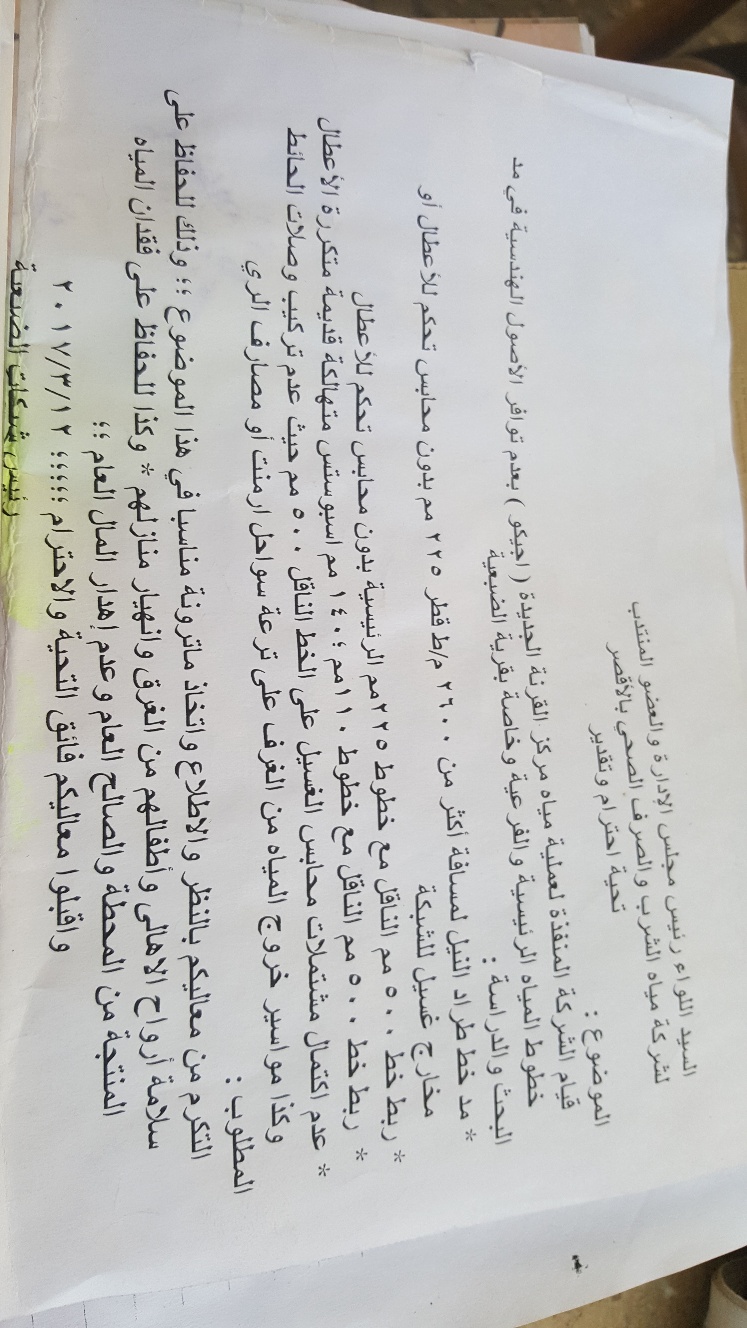 السيد اللواء رئيس مجلس الإدارة والعضو المنتدب
لشركة مياه الشرب والصرف الصحي بالأقصر
تحية احترام وتقدير
الموضوع :
قيام الشركة المنفذة لعملية مياه مركز القرنة الجديدة ( اجيكو ) بعدم توافر الأصول الهندسية في مد
خطوط المياه الرئيسية والفرعية وخاصة بقرية الضبعية
البحث والدراسة :
* مد خط طراد النيل لمسافة أكثر من ٢٦٠٠ م/ط قطر ٢٢٥ مم بدون محابس تحكم للأعطال أو
مخارج غسيل للشبكة
* ربط خط ٥٠٠ مم الناقل مع خطوط ٢٢٥مم الرئيسية بدون محابس تحكم للأعطال
* ربط خط ٥٠٠ مم الناقل مع خطوط ١١٠مم ؛ ١٤٠ مم اسبوستس متهالكة قديمة متكررة الأعطال
* عدم اكتمال مشتملات محابس الغسيل على الخط الناقل ٥٠٠ مم حيث عدم تركيب وصلات الحائط
وكذا مواسير خروج المياه من الغرف على ترعة سواحل ارمنت أو مصارف الري
المطلوب :
التكرم من معاليكم بالنظر والاطلاع واتخاذ ماترونة مناسبا في هذا الموضوع ؛؛ وذلك للحفاظ على
سلامة أرواح الاهالى وأطفالهم من الغرق وانهيار منازلهم * وكذا للحفاظ على فقدان المياه
المنتجة من المحطة والصالح العام وعدم إهدار المال العام ؛؛
واقبلوا معاليكم فائق التحية والاحترام ؛؛؛؛؛ ٢٠١٧/٣/١٢
رئيس شبكات الضبعية